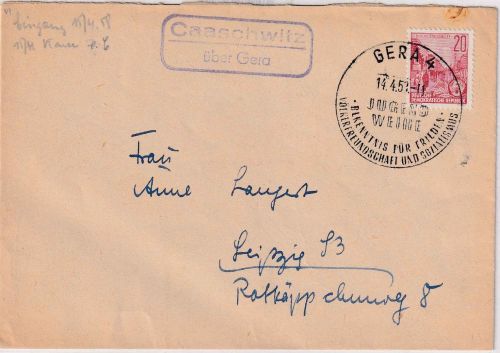 Eingang 15/4.58
Caaschwitz
über Gera
20
DEUTSCHE
DEMOKRATISCHE REPUBLIK
GERA 4
14.4.5
JUGEND
WEIHE
· BEKENNTNIS FÜR FRIEDEN ·
VÖLKERFREUNDSCHAFT UND SOZIALISMUS
Frau
Anne Langert
Leipzig S3
Rotkäppchenweg 8